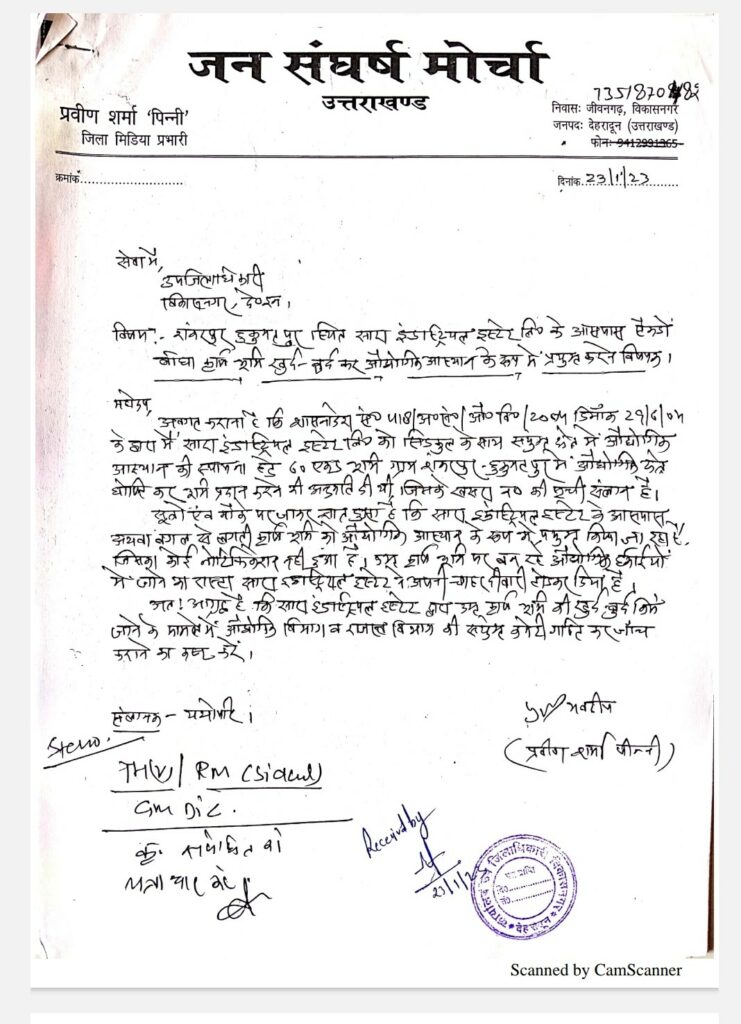 जन संघर्ष मोर्चा
उत्तराखण्ड
प्रवीण शर्मा 'पिन्नी'
जिला मिडिया प्रभारी
निवासः जीवनगढ़, विकासनगर
जनपदः देहरादून (उत्तराखण्ड)
फोनः 9412991365
क्रमांक
दिनांक 23/1/23
सेवा में,
उपजिलाधिकारी
विकासनगर, दे०दून।
विषय:- शंकरपुर हुकुमतपुर स्थित सारा इंडस्ट्रियल इस्टेट लि० के आसपास सैकडों
बीघा कृषि भूमि खुर्द-बुर्द कर औद्योगिक आस्थान के रूप में प्रयुक्त करने विषयक।
महोदय,
अवगत कराना है कि शासनादेश सं०
के द्वारा में सारा इंडस्ट्रियल इस्टेट लि० को सिडकुल के साथ संयुक्त क्षेत्र में औद्योगिक
आस्थान की स्थापना हेतु 60 एकड भूमि ग्राम शंकरपुर-हुकुमतपुर में औद्योगिक क्षेत्र
घोषित कर भूमि प्रदान करने की अनुमति दी थी, जिसके खसरा न० की सूची संलग्न है।
सूत्रों एवं मौके पर जाकर ज्ञात हुआ है कि सारा इंडस्ट्रियल इस्टेट के आसपास
अथवा बगल से लगती कृषि भूमि को औद्योगिक आस्थान के रूप में प्रयुक्त किया जा रहा है,
जिसका कोई नोटिफिकेशन नहीं हुआ है। उक्त कृषि भूमि पर बन रहे औद्योगिक इकाईयों
में जाने का रास्ता सारा इंडस्ट्रियल इस्टेट ने अपनी चाहरदीवारी तोडकर दिया है।
अतः आग्रह है कि सारा इंडस्ट्रियल इस्टेट द्वारा उक्त कृषि भूमि को खुर्द-बुर्द किये
जाने के मामले में औद्योगिक विभाग व राजस्व विभाग की संयुक्त कमेटी गठित कर जाँच
कराने का कष्ट करें।
संलग्नक - यथोपरि।
भवदीय
(प्रवीण शर्मा पिन्नी)
Steno.
TH(V)/ RM (Sidcul)
GM DIC.
Received by
23/1/23
कार्यालय उप जिलाधिकारी विकासनगर
देहरादून
Scanned by CamScanner